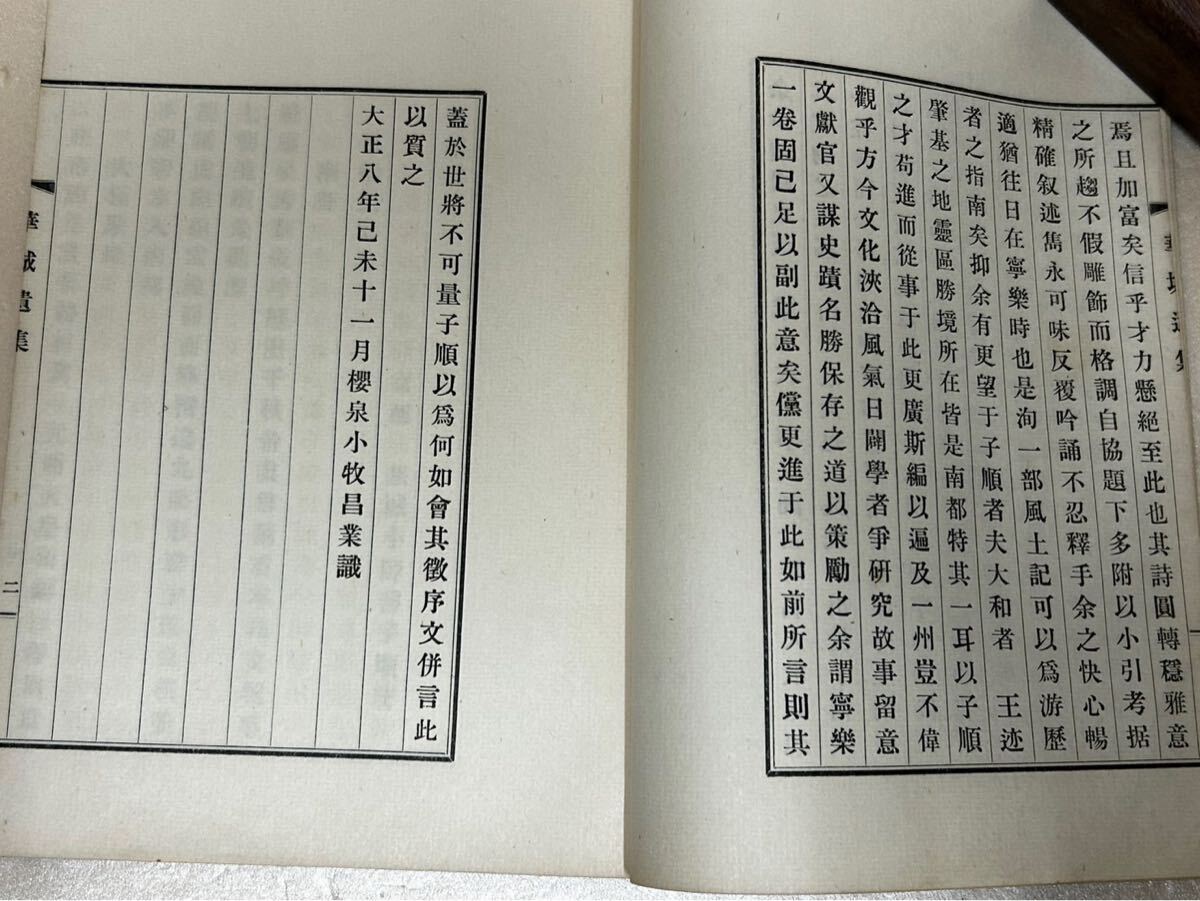 焉且加富矣信乎才力懸絕至此也其詩圓轉穩雅意
之所趨不假雕飾而格調自協題下多附以小引考据
精確叙述雋永可味反覆吟誦不忍釋手余之快心暢
適猶往日在寧樂時也是洵一部風土記可以爲游歷
者之指南矣抑余有更望于子順者夫大和者　王迹
肇基之地靈區勝境所在皆是南都特其一耳以子順
之才苟進而從事于此更廣斯編以遍及一州豈不偉
觀乎方今文化浹洽風氣日闢學者爭研究故事留意
文獻官又謀史蹟名勝保存之道以策勵之余謂寧樂
一卷固已足以副此意矣儻更進于此如前所言則其
蓋於世將不可量子順以爲何如會其徵序文併言此
以質之
大正八年己未十一月櫻泉小牧昌業識
遺集
二